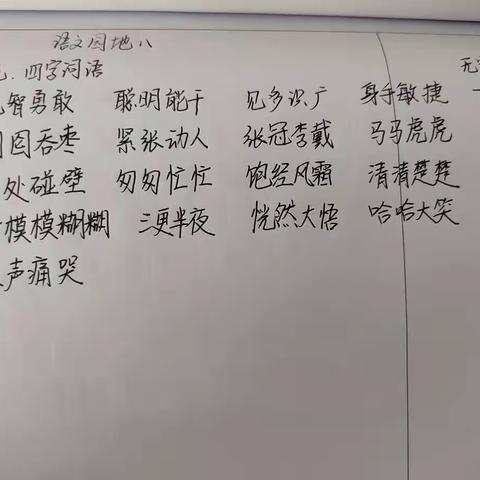 语文园地八
、四字词语
智勇敢 聪明能干 见多识广 身手敏捷
囵吞枣 紧张动人 张冠李戴 马马虎虎
处碰壁 匆匆忙忙 饱经风霜 清清楚楚
模模糊糊 三更半夜 恍然大悟 哈哈大笑
声痛哭